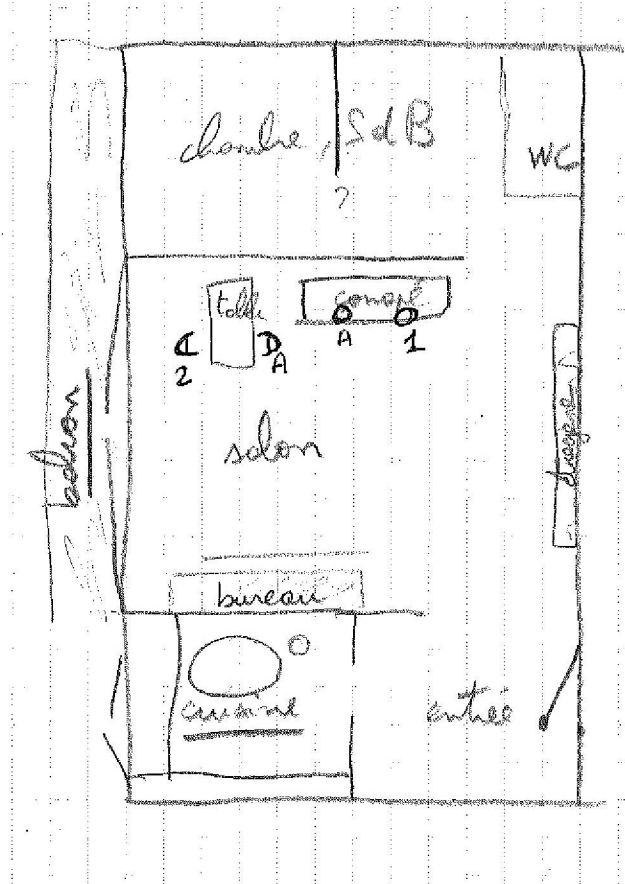 chambre, SdB
WC
?
table
canapé
A
1
2
A
balcon
salon
étagères
bureau
cuisine
entrée